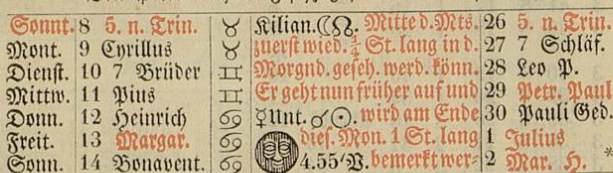 Sonnt. 8 5. n. Trin. ♉ Kilian. ☾☊. Mitte d. Mts. 26 5. n. Trin.
Mont. 9 Cyrillus ♉ zuerst wied. ¼ St. lang in d. 27 7 Schläf.
Dienst. 10 7 Brüder ♊ Morgnd. geseh. werd. könn. 28 Leo P.
Mittw. 11 Pius ♊ Er geht nun früher auf und 29 Petr. Paul
Donn. 12 Heinrich ♋ ☿ Unt. ☌ ☉. wird am Ende 30 Pauli Ged.
Freit. 13 Margar. ♋ dies. Mon. 1 St. lang 1 Julius
Sonn. 14 Bonavent. ♋ 4.55' V. bemerkt wer- 2 Mar. H. *